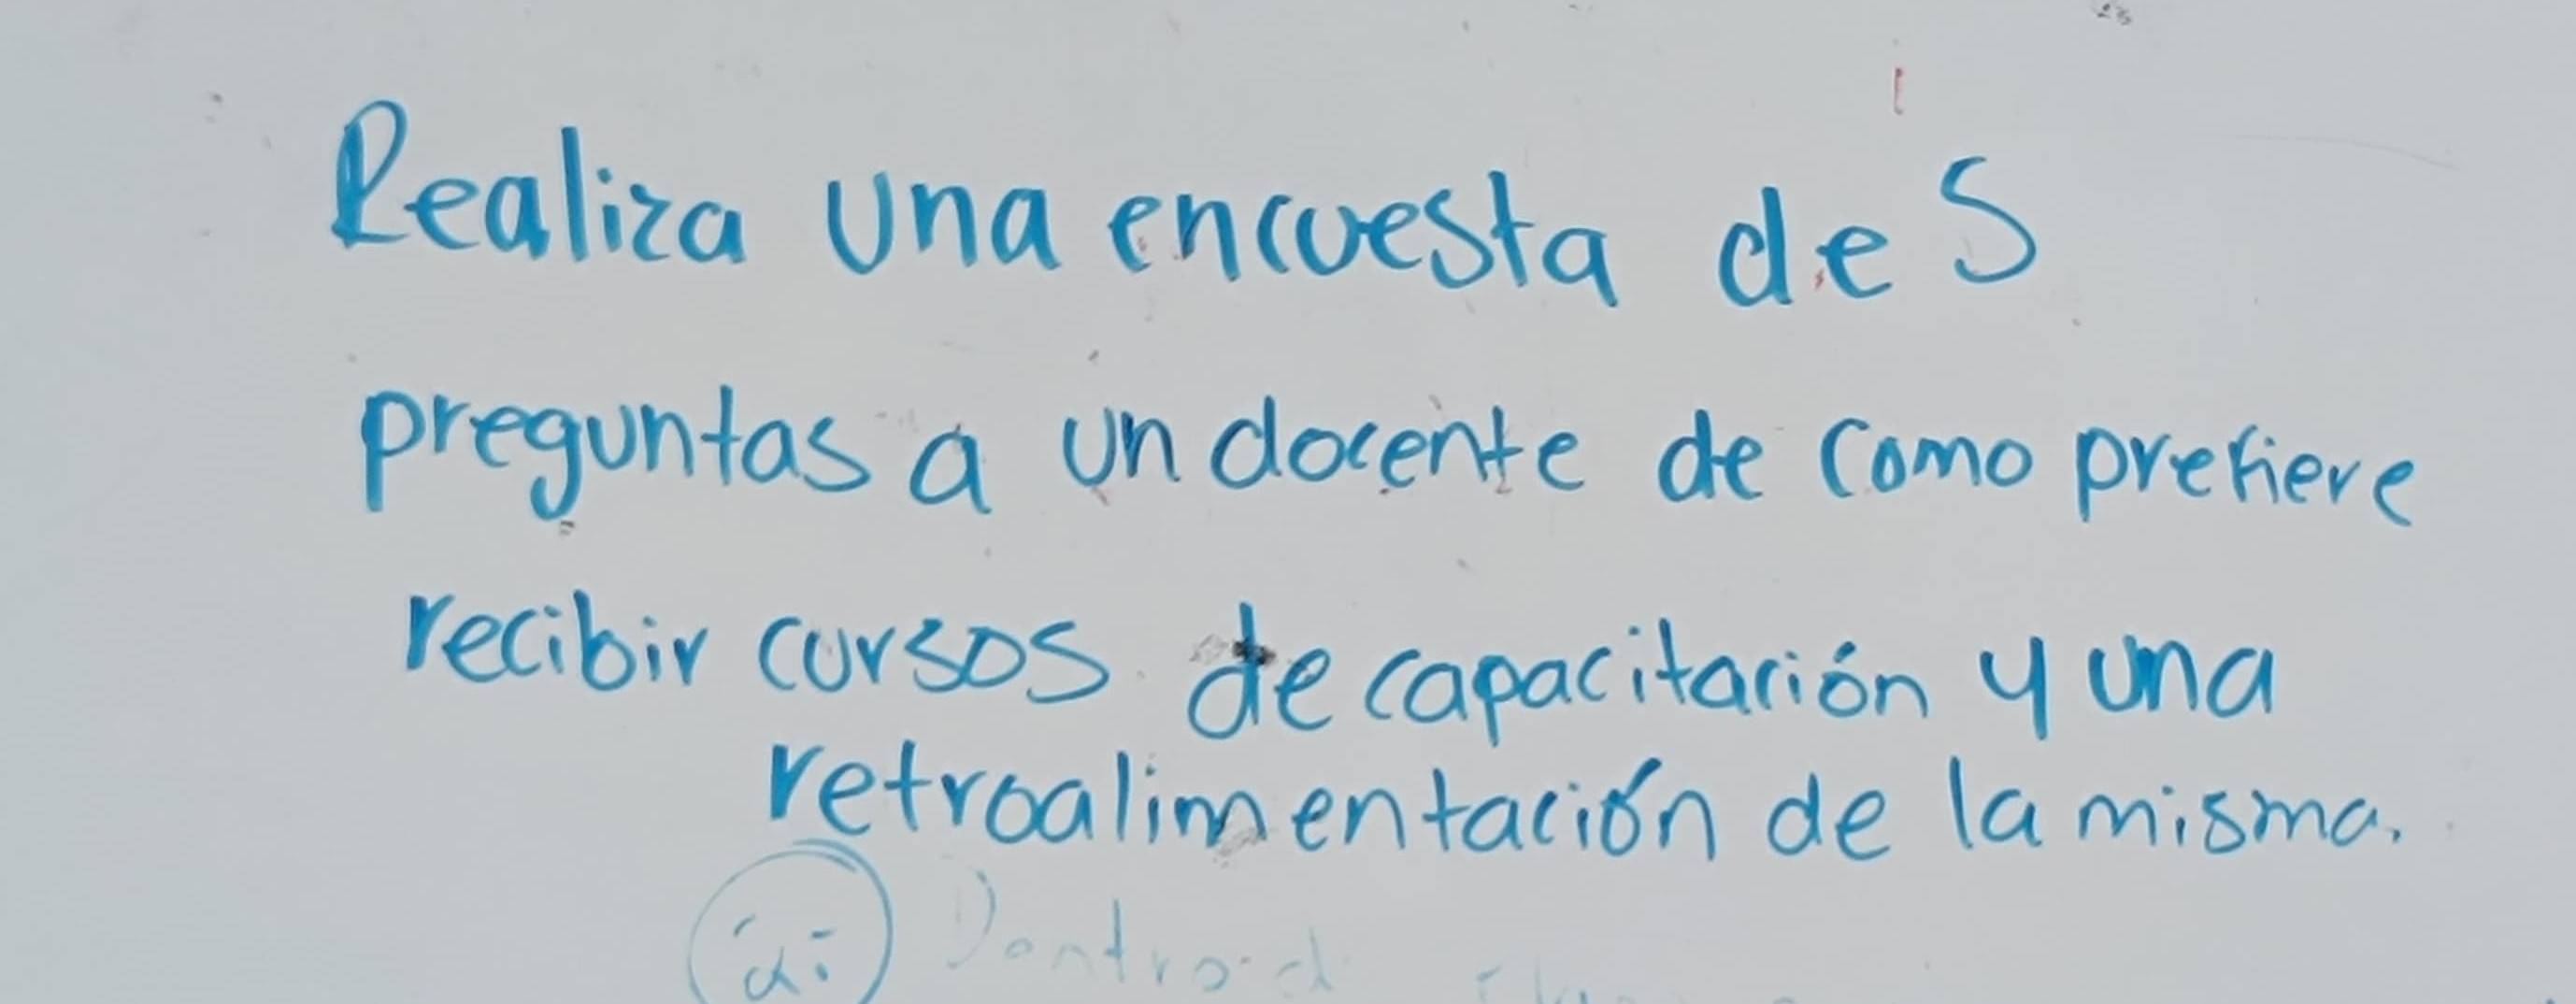 Realiza una encuesta de 5
preguntas a un docente de como prefiere
recibir cursos de capacitación y una
retroalimentación de la misma.